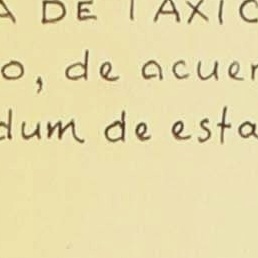 A DE TAXIC
o, de acuer
dum de esta